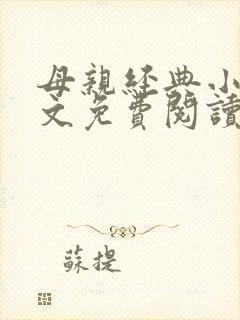 母親經典小
文免費閱讀
蘇提